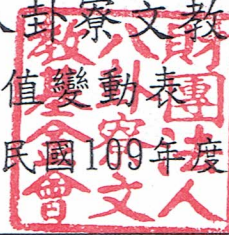 八卦寮文教
值變動表
民國109年度
財團法人
八卦寮文
教基金會